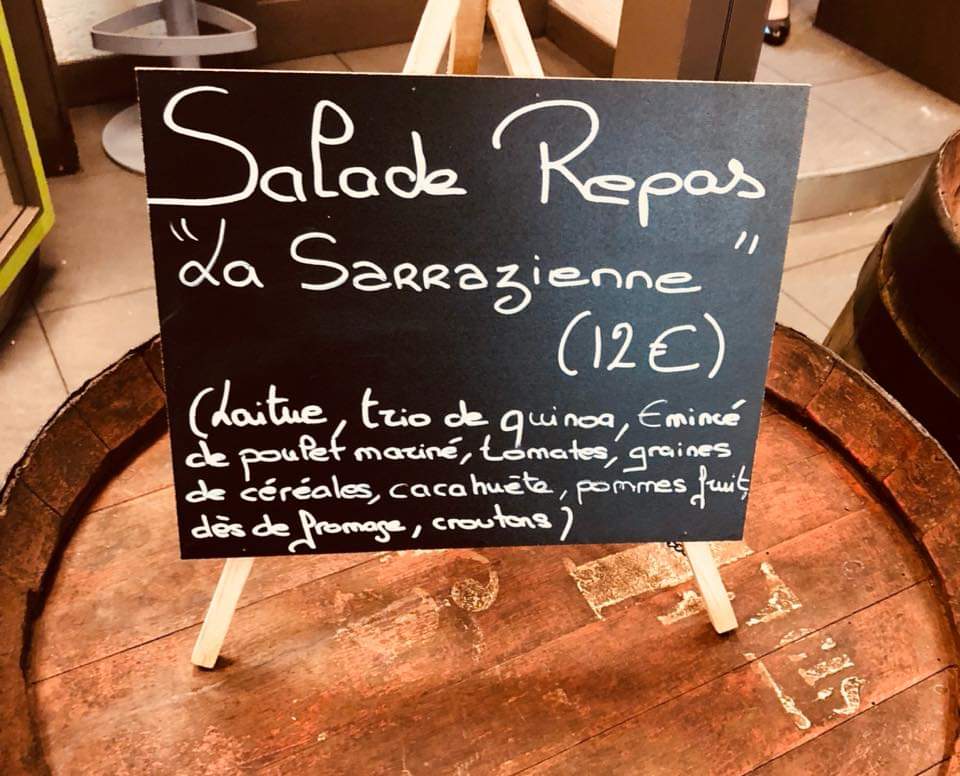 Salade Repas
"La Sarrazienne"
(12€)
(Laitue, trio de quinoa, Emincé
de poulet mariné, tomates, graines
de céréales, cacahuète, pommes fruit,
dès de fromage, croutons)